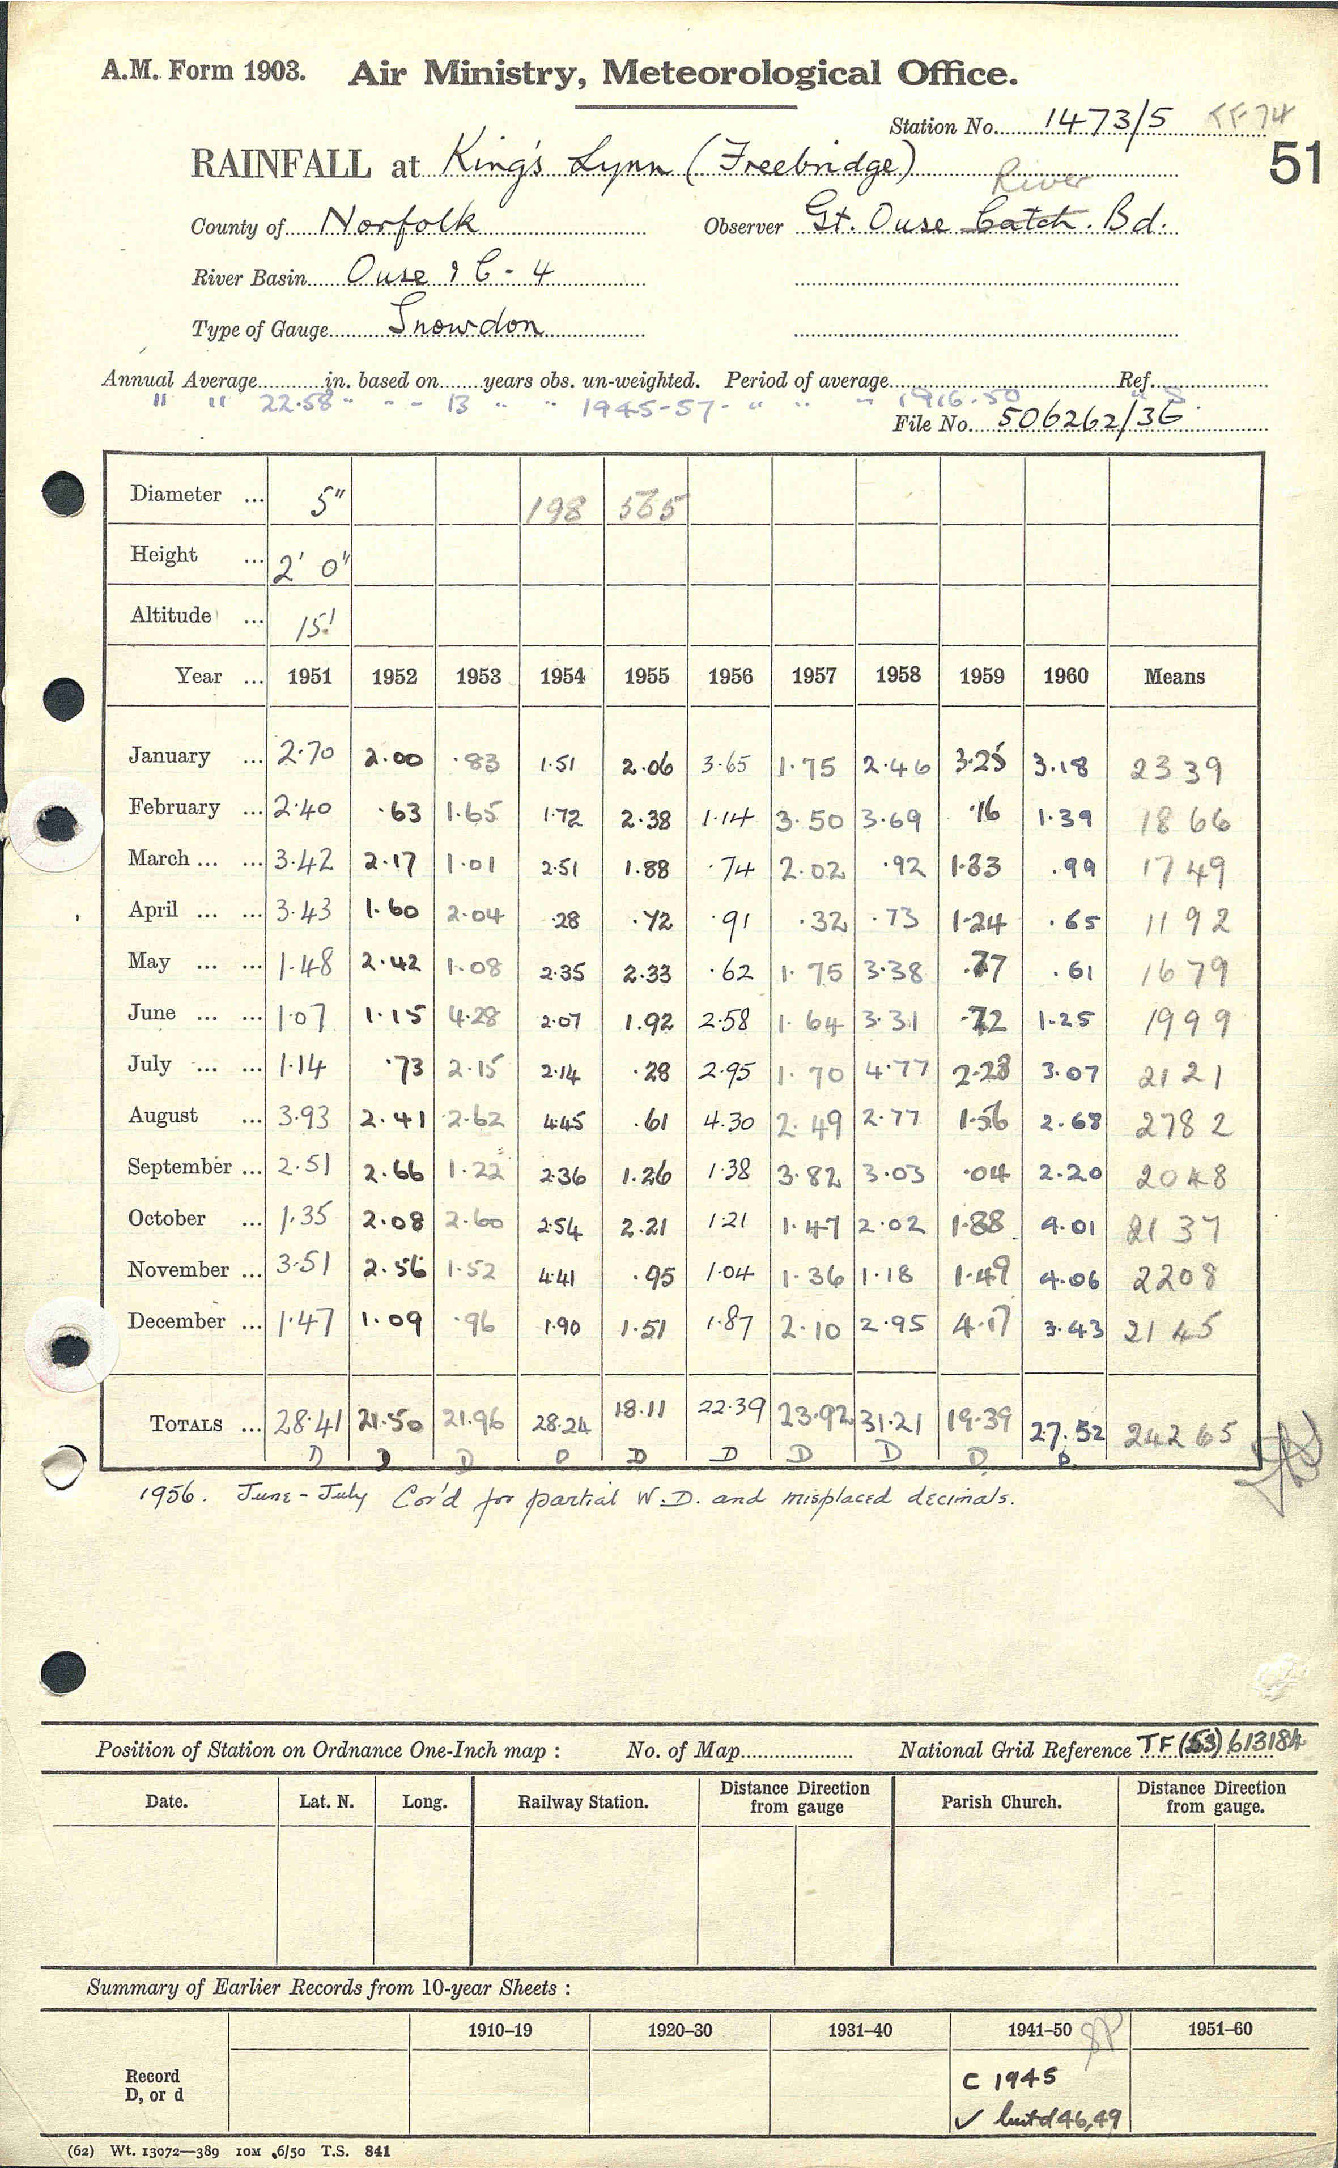 A.M. Form 1903. Air Ministry, Meteorological Office.
Station No. 1473/5 TF 74
RAINFALL at King's Lynn (Freebridge) 51
River
County of Norfolk Observer Gt. Ouse Catch. Bd.
River Basin Ouse & C - 4
Type of Gauge Snowdon
Annual Average in. based on years obs. un-weighted. Period of average Ref.
" " 22.58 " - - 13 " " 1945-57 - " " " 1916-50 " S
File No. 506262/36
Diameter ... 5" 198 565
Height ... 2' 0"
Altitude ... 15'
Year ... 1951 1952 1953 1954 1955 1956 1957 1958 1959 1960 Means
January ... 2.70 2.00 .83 1.51 2.06 3.65 1.75 2.46 3.25 3.18 23 39
February ... 2.40 .63 1.65 1.72 2.38 1.14 3.50 3.69 .16 1.39 18 66
March ... ... 3.42 2.17 1.01 2.51 1.88 .74 2.02 .92 1.83 .99 17 49
April ... ... 3.43 1.60 2.04 .28 .72 .91 .32 .73 1.24 .65 11 92
May ... ... 1.48 2.42 1.08 2.35 2.33 .62 1.75 3.38 .77 .61 16 79
June ... ... 1.07 1.15 4.28 2.07 1.92 2.58 1.64 3.31 .72 1.25 19 99
July ... ... 1.14 .73 2.15 2.14 .28 2.95 1.70 4.77 2.28 3.07 21 21
August ... 3.93 2.41 2.62 4.45 .61 4.30 2.49 2.77 1.56 2.68 27 82
September ... 2.51 2.66 1.22 2.36 1.26 1.38 3.82 3.03 .04 2.20 20 48
October ... 1.35 2.08 2.60 2.54 2.21 1.21 1.47 2.02 1.88 4.01 21 37
November ... 3.51 2.56 1.52 4.41 .95 1.04 1.36 1.18 1.49 4.06 22 08
December ... 1.47 1.09 .96 1.90 1.51 1.87 2.10 2.95 4.17 3.43 21 45
TOTALS ... 28.41 21.50 21.96 28.24 18.11 22.39 23.92 31.21 19.39 27.52 242 65
D D D D D D D D D D
1956. June - July Cor'd for partial W.D. and misplaced decimals.
Position of Station on Ordnance One-Inch map : No. of Map National Grid Reference TF (53) 613184
Date. Lat. N. Long. Railway Station. Distance Direction from gauge Parish Church. Distance Direction from gauge.
Summary of Earlier Records from 10-year Sheets :
1910–19 1920–30 1931–40 1941–50 1951–60
Record C 1945
D, or d ✓ but d 46,49
(62) Wt. 13072—389 10M 6/50 T.S. 841